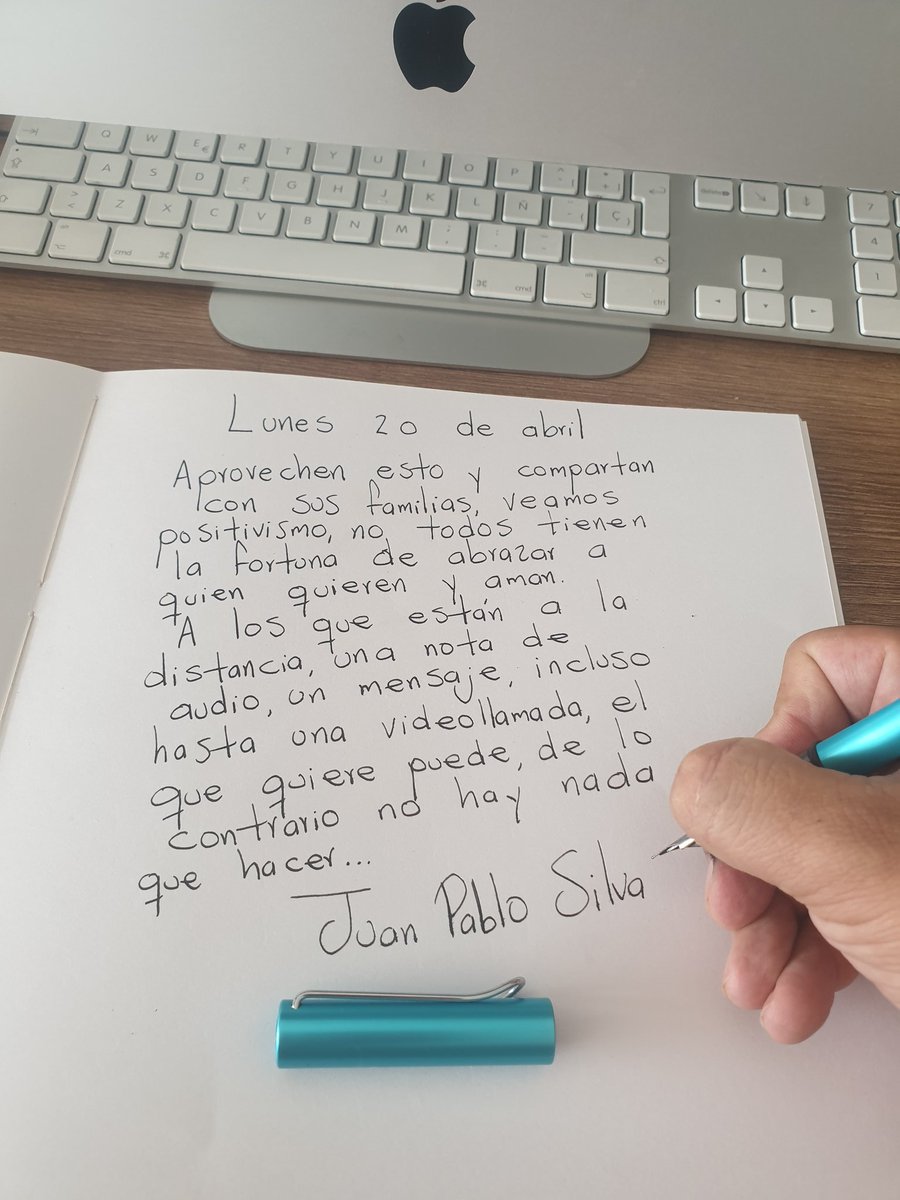 Q W E € R T Y U I O P
A S D F G H J K L Ñ Ç
Z X C V B N M
cmd cmd alt ctrl
delete
7
4
1
Lunes 20 de abril
Aprovechen esto y compartan
con sus familias, veamos
positivismo, no todos tienen
la fortuna de abrazar a
quien quieren y aman.
A los que están a la
distancia, una nota de
audio, un mensaje, incluso
hasta una videollamada, el
que quiere puede, de lo
contrario no hay nada
que hacer...
Juan Pablo Silva